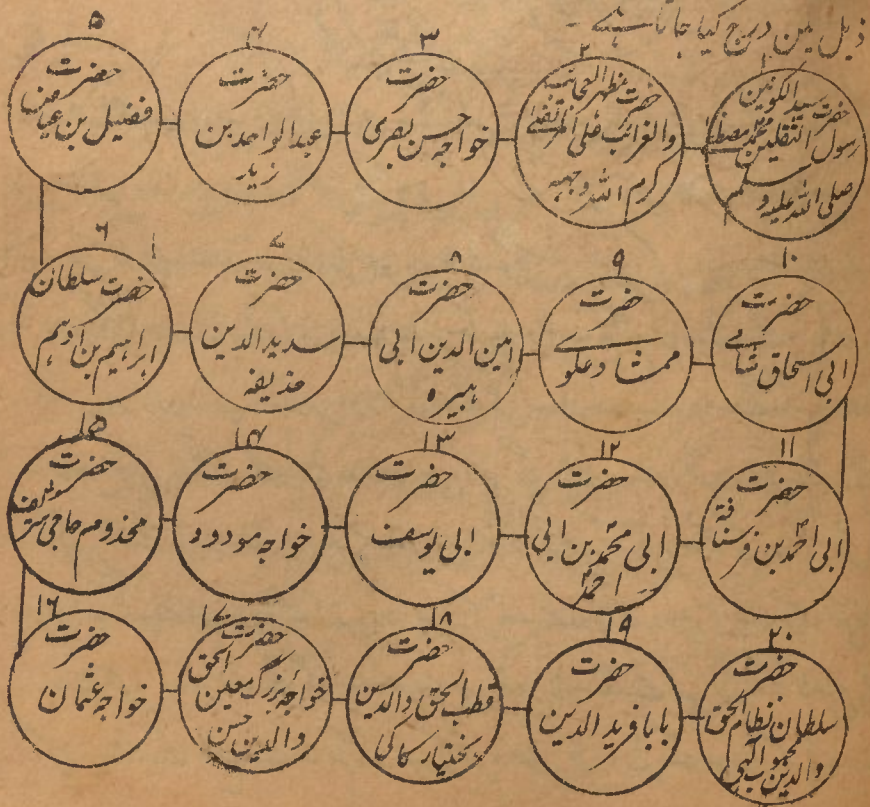 ذیل مین درج کیا جاتا ہے۔
۱
حضرت سید الکونین
رسول الثقلین محمد مصطفےٰ
صلی اللہ علیہ وسلم
۲
حضرت مظہر العجائب
والغرائب علی المرتضےٰ
کرم اللہ وجہہ
۳
حضرت
خواجہ حسن بصری
۴
حضرت
عبدالواحد بن
زید
۵
حضرت
فضیل بن عیاض
۶
حضرت سلطان
ابراہیم بن ادہم
۷
حضرت
سدید الدین
حذیفہ
۸
حضرت
امین الدین ابی
ہبیرہ
۹
حضرت
ممشاد علوے
۱۰
حضرت
ابی اسحاق شامے
۱۱
حضرت
ابی احمد بن فرسنافہ
۱۲
حضرت
ابی محمد بن ابی
احمد
۱۳
حضرت
ابی یوسف
۱۴
حضرت
خواجہ مودود
۱۵
حضرت
مخدوم حاجی شریف
۱۶
حضرت
خواجہ عثمان
۱۷
حضرت
خواجہ بزرگ معین الحق
والدین حسن
۱۸
حضرت
قطب الحق والدین
بختیار کاکی
۱۹
حضرت
بابا فرید الدین
۲۰
حضرت
سلطان نظام الحق
والدین محبوب الٰہی